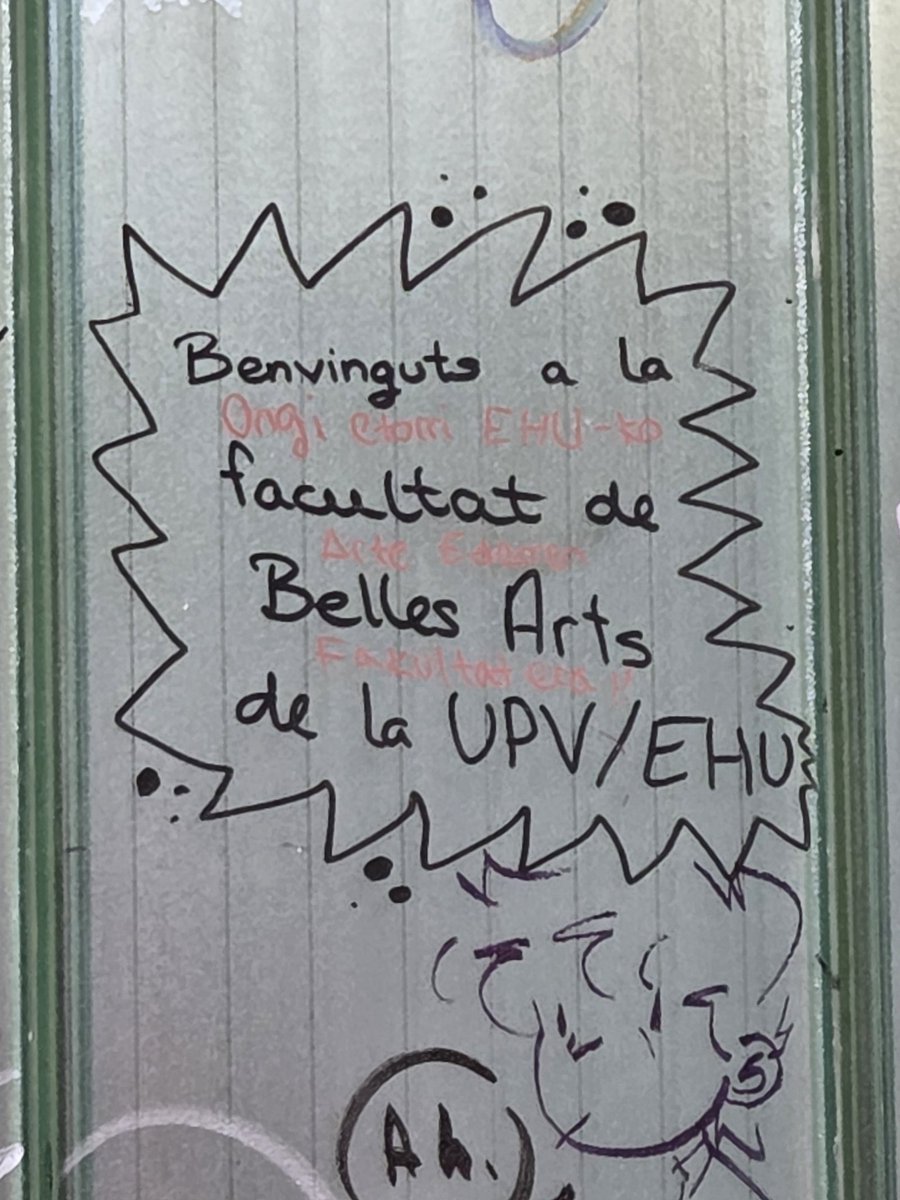 Benvinguts a la
Ongi etorri EHU-ko
facultat de
Arte Ederren
Belles Arts
Fakultatera!!
de la UPV/EHU
A h.
5